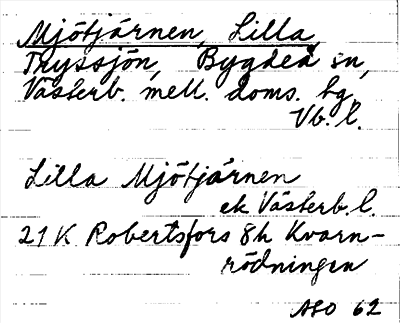 Mjötjärnen, Lilla,
Tryssjön, Bygdeå sn,
Västerb. mell. doms. hg
Vb. l.
Lilla Mjötjärnen
ek Västerb. l.
21K Robertsfors 8h Kvarn-
rödningen
ASO 62